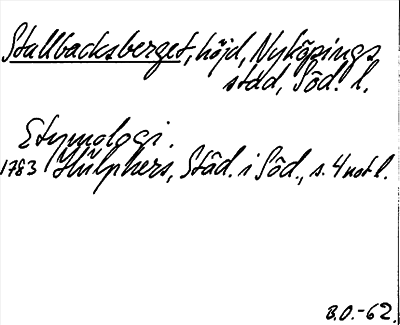 Stallbacksberget, höjd, Nyköpings
stad, Söd. l.
Etymologi.
1783 Hülphers, Städ. i Söd., s. 4 not l.
B.O.-62.